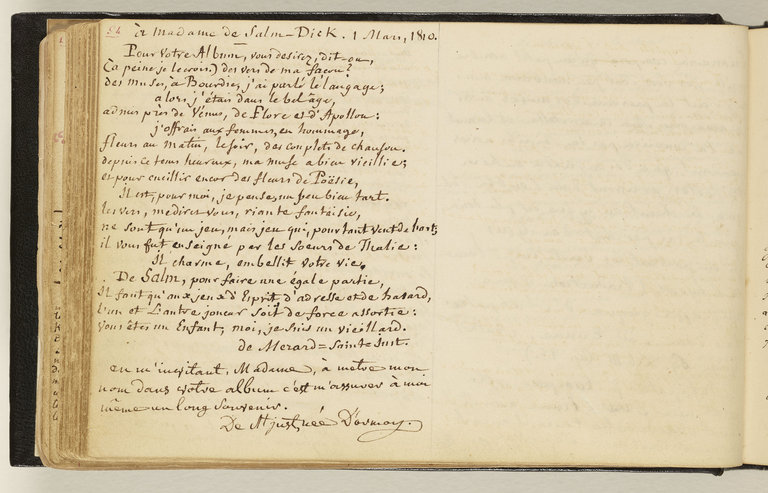 54 à Madame de Salm-Dick. 1 Mars, 1810.
Pour votre Album, vous desirez, dit-on,
(à peine je le crois,) des vers de ma façon?
des muses, à Bourdic, j'ai parlé le langage;
alors j'étais dans le bel âge,
admis près de Vénus, de Flore et d'Apollon:
j'offrais aux femmes, en hommage,
fleurs au matin, le soir, des couplets de chanson.
depuis ce tems heureux, ma muse a bien vieillie;
et pour cueillir encor des fleurs de Poësie,
Il est, pour moi, je pense, un peu bien tart.
les vers, me direz vous, riante fantaisie,
ne sont qu'un jeu, mais jeu qui, pourtant veut de l'art;
il vous fut enseigné par les Soeurs de Thalie:
Il charme, embellit votre vie.
De Salm, pour faire une égale partie,
Il faut qu'aux jeux d'Esprit d'adresse et de hasard,
l'un et l'autre joueur soit de force assortie:
vous êtes un Enfant, moi, je suis un vieillard.
de Merard=Saint=Just.
en m'invitant, Madame, à metre mon
nom dans votre album c'est m'assurer à moi
même un long souvenir.
De St just, née D'ormoy.